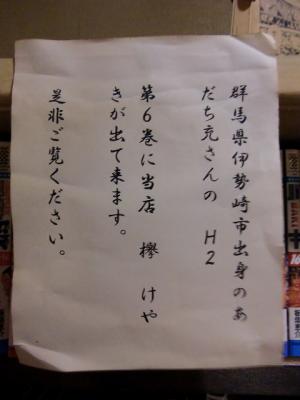 群馬県伊勢崎市出身のあ
だち充さんの H2
第6巻に当店 欅 けや
きが出て来ます。
是非ご覧ください。